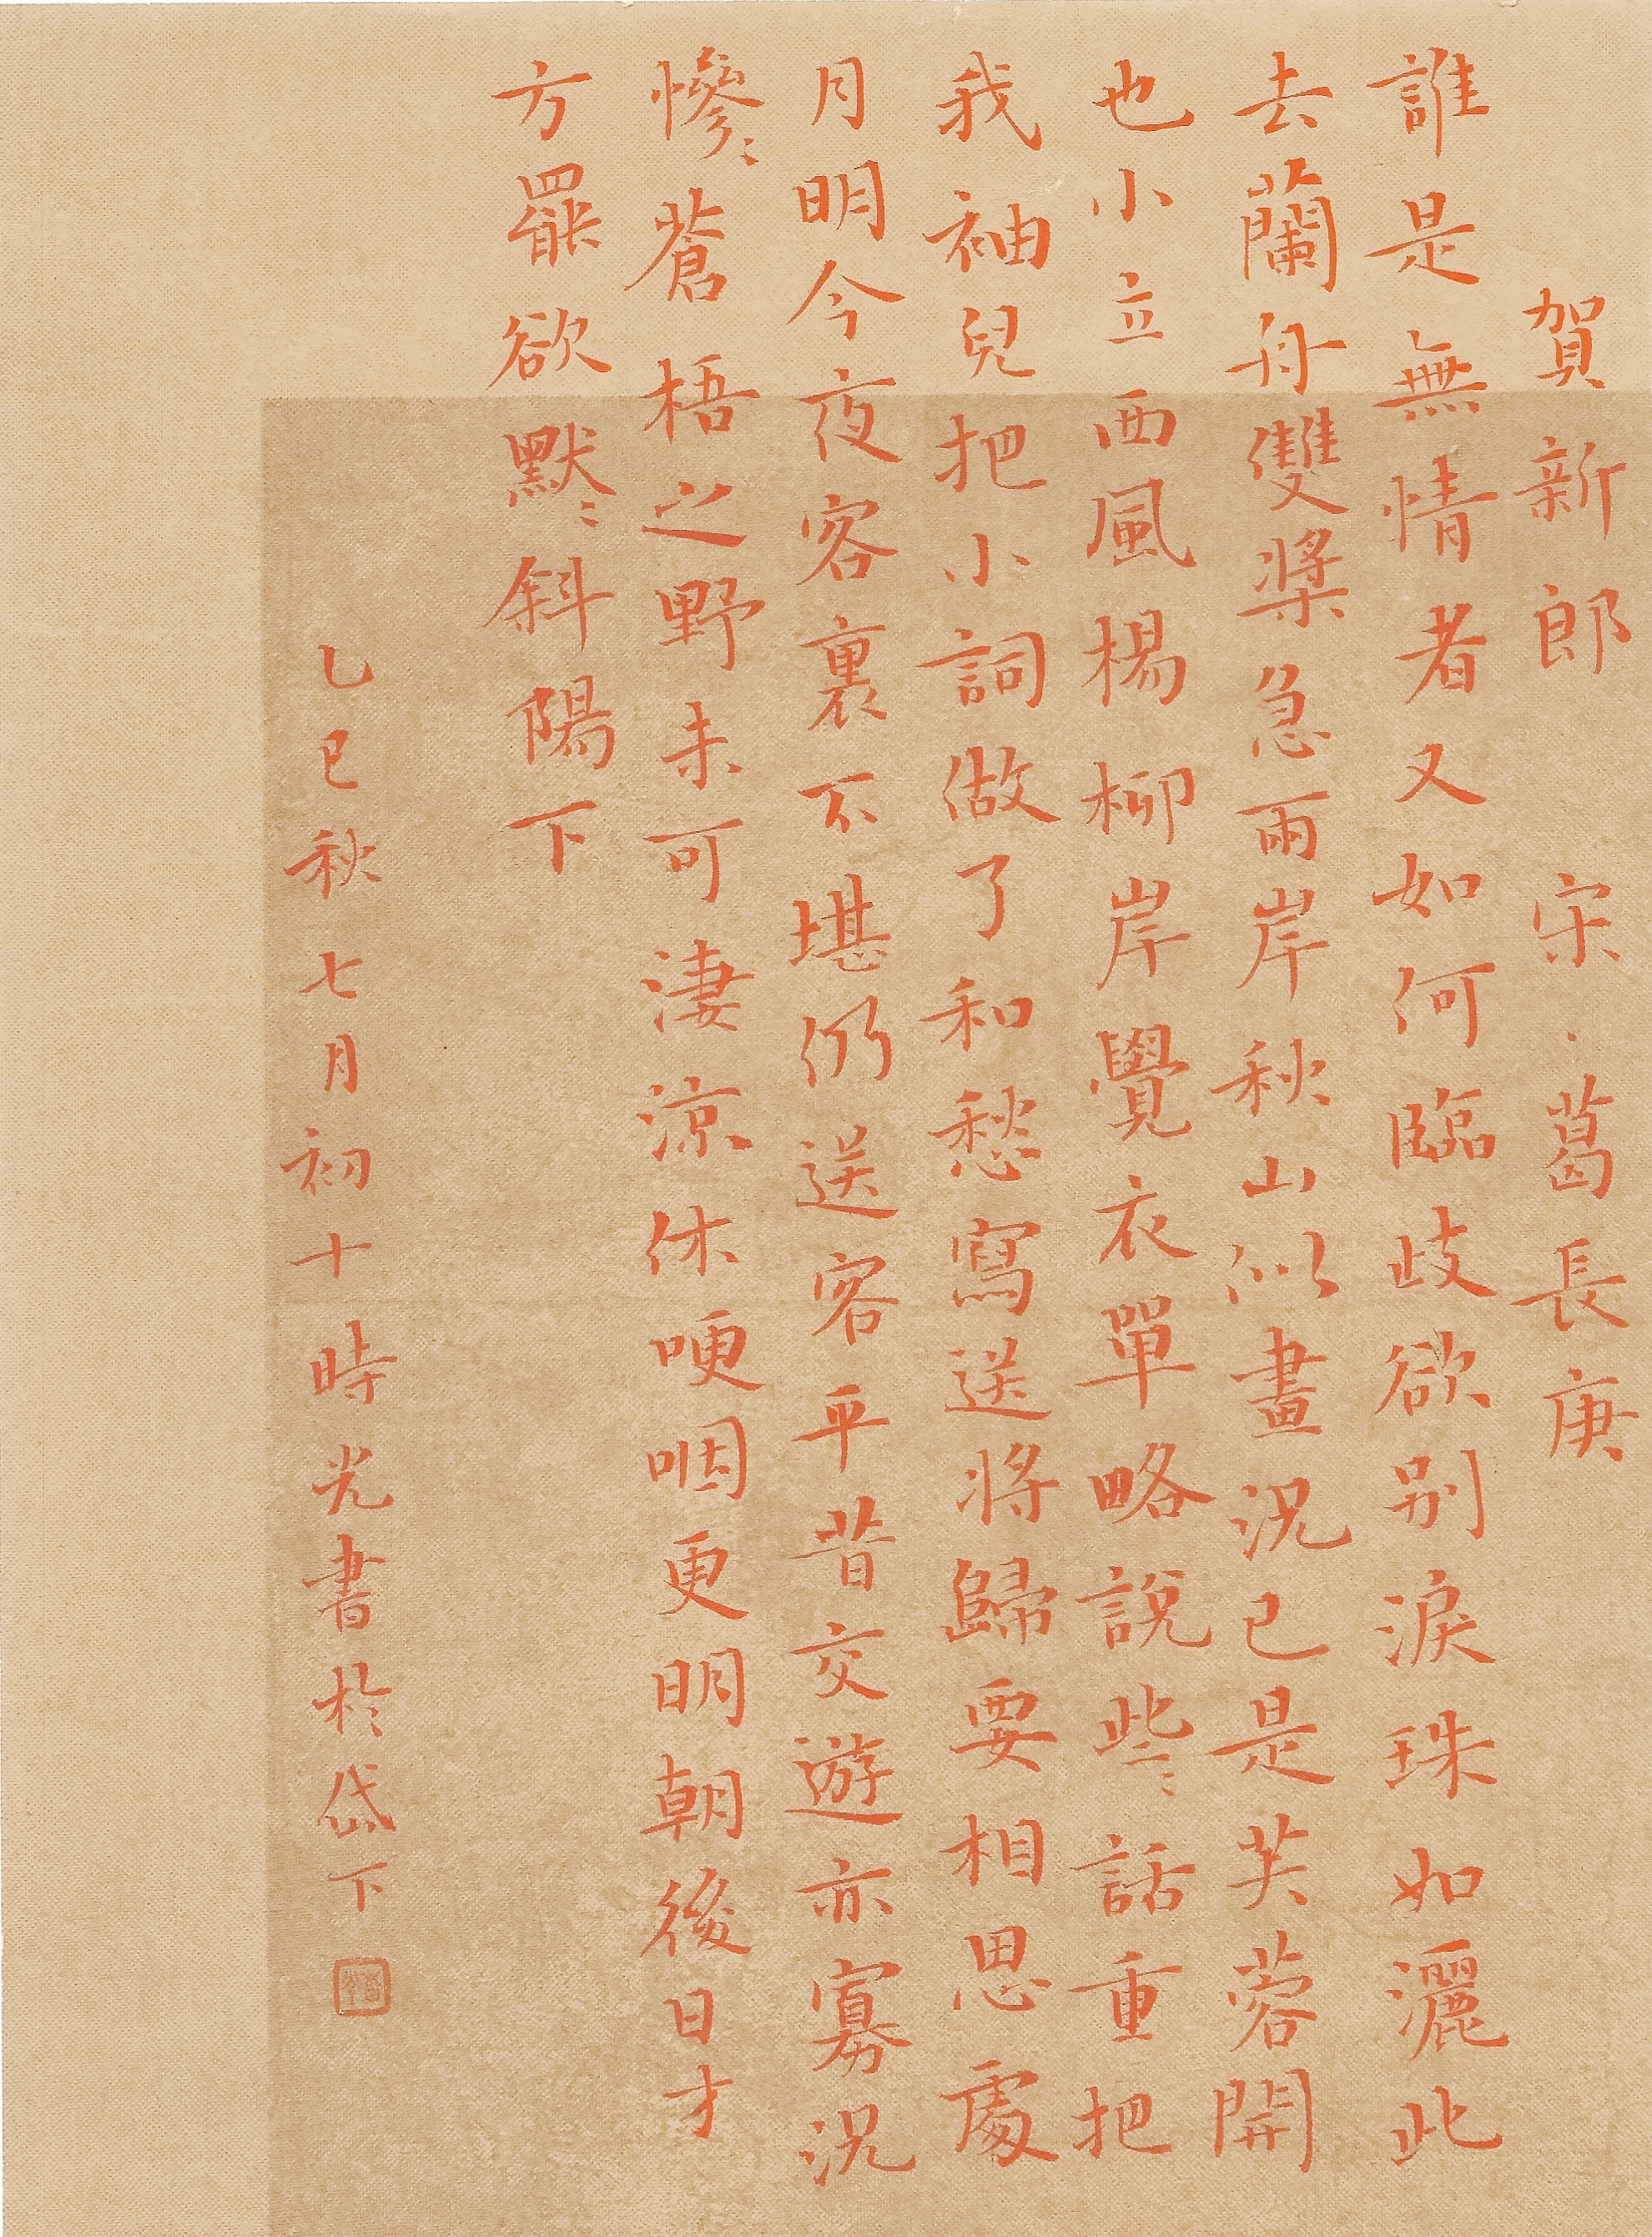 賀新郎 宋·葛長庚
誰是無情者又如何臨歧欲别淚珠如灑此
去蘭舟雙槳急兩岸秋山似畫況已是芙蓉開
也小立西風楊柳岸覺衣單略說些〻話重把
我袖兒把小詞做了和愁寫送將歸要相思處
月明今夜客裏不堪仍送客平昔交遊亦寡況
慘〻蒼梧之野未可淒涼休哽咽更明朝後日才
方罷欲默〻斜陽下
乙巳秋七月初十時光書於岱下